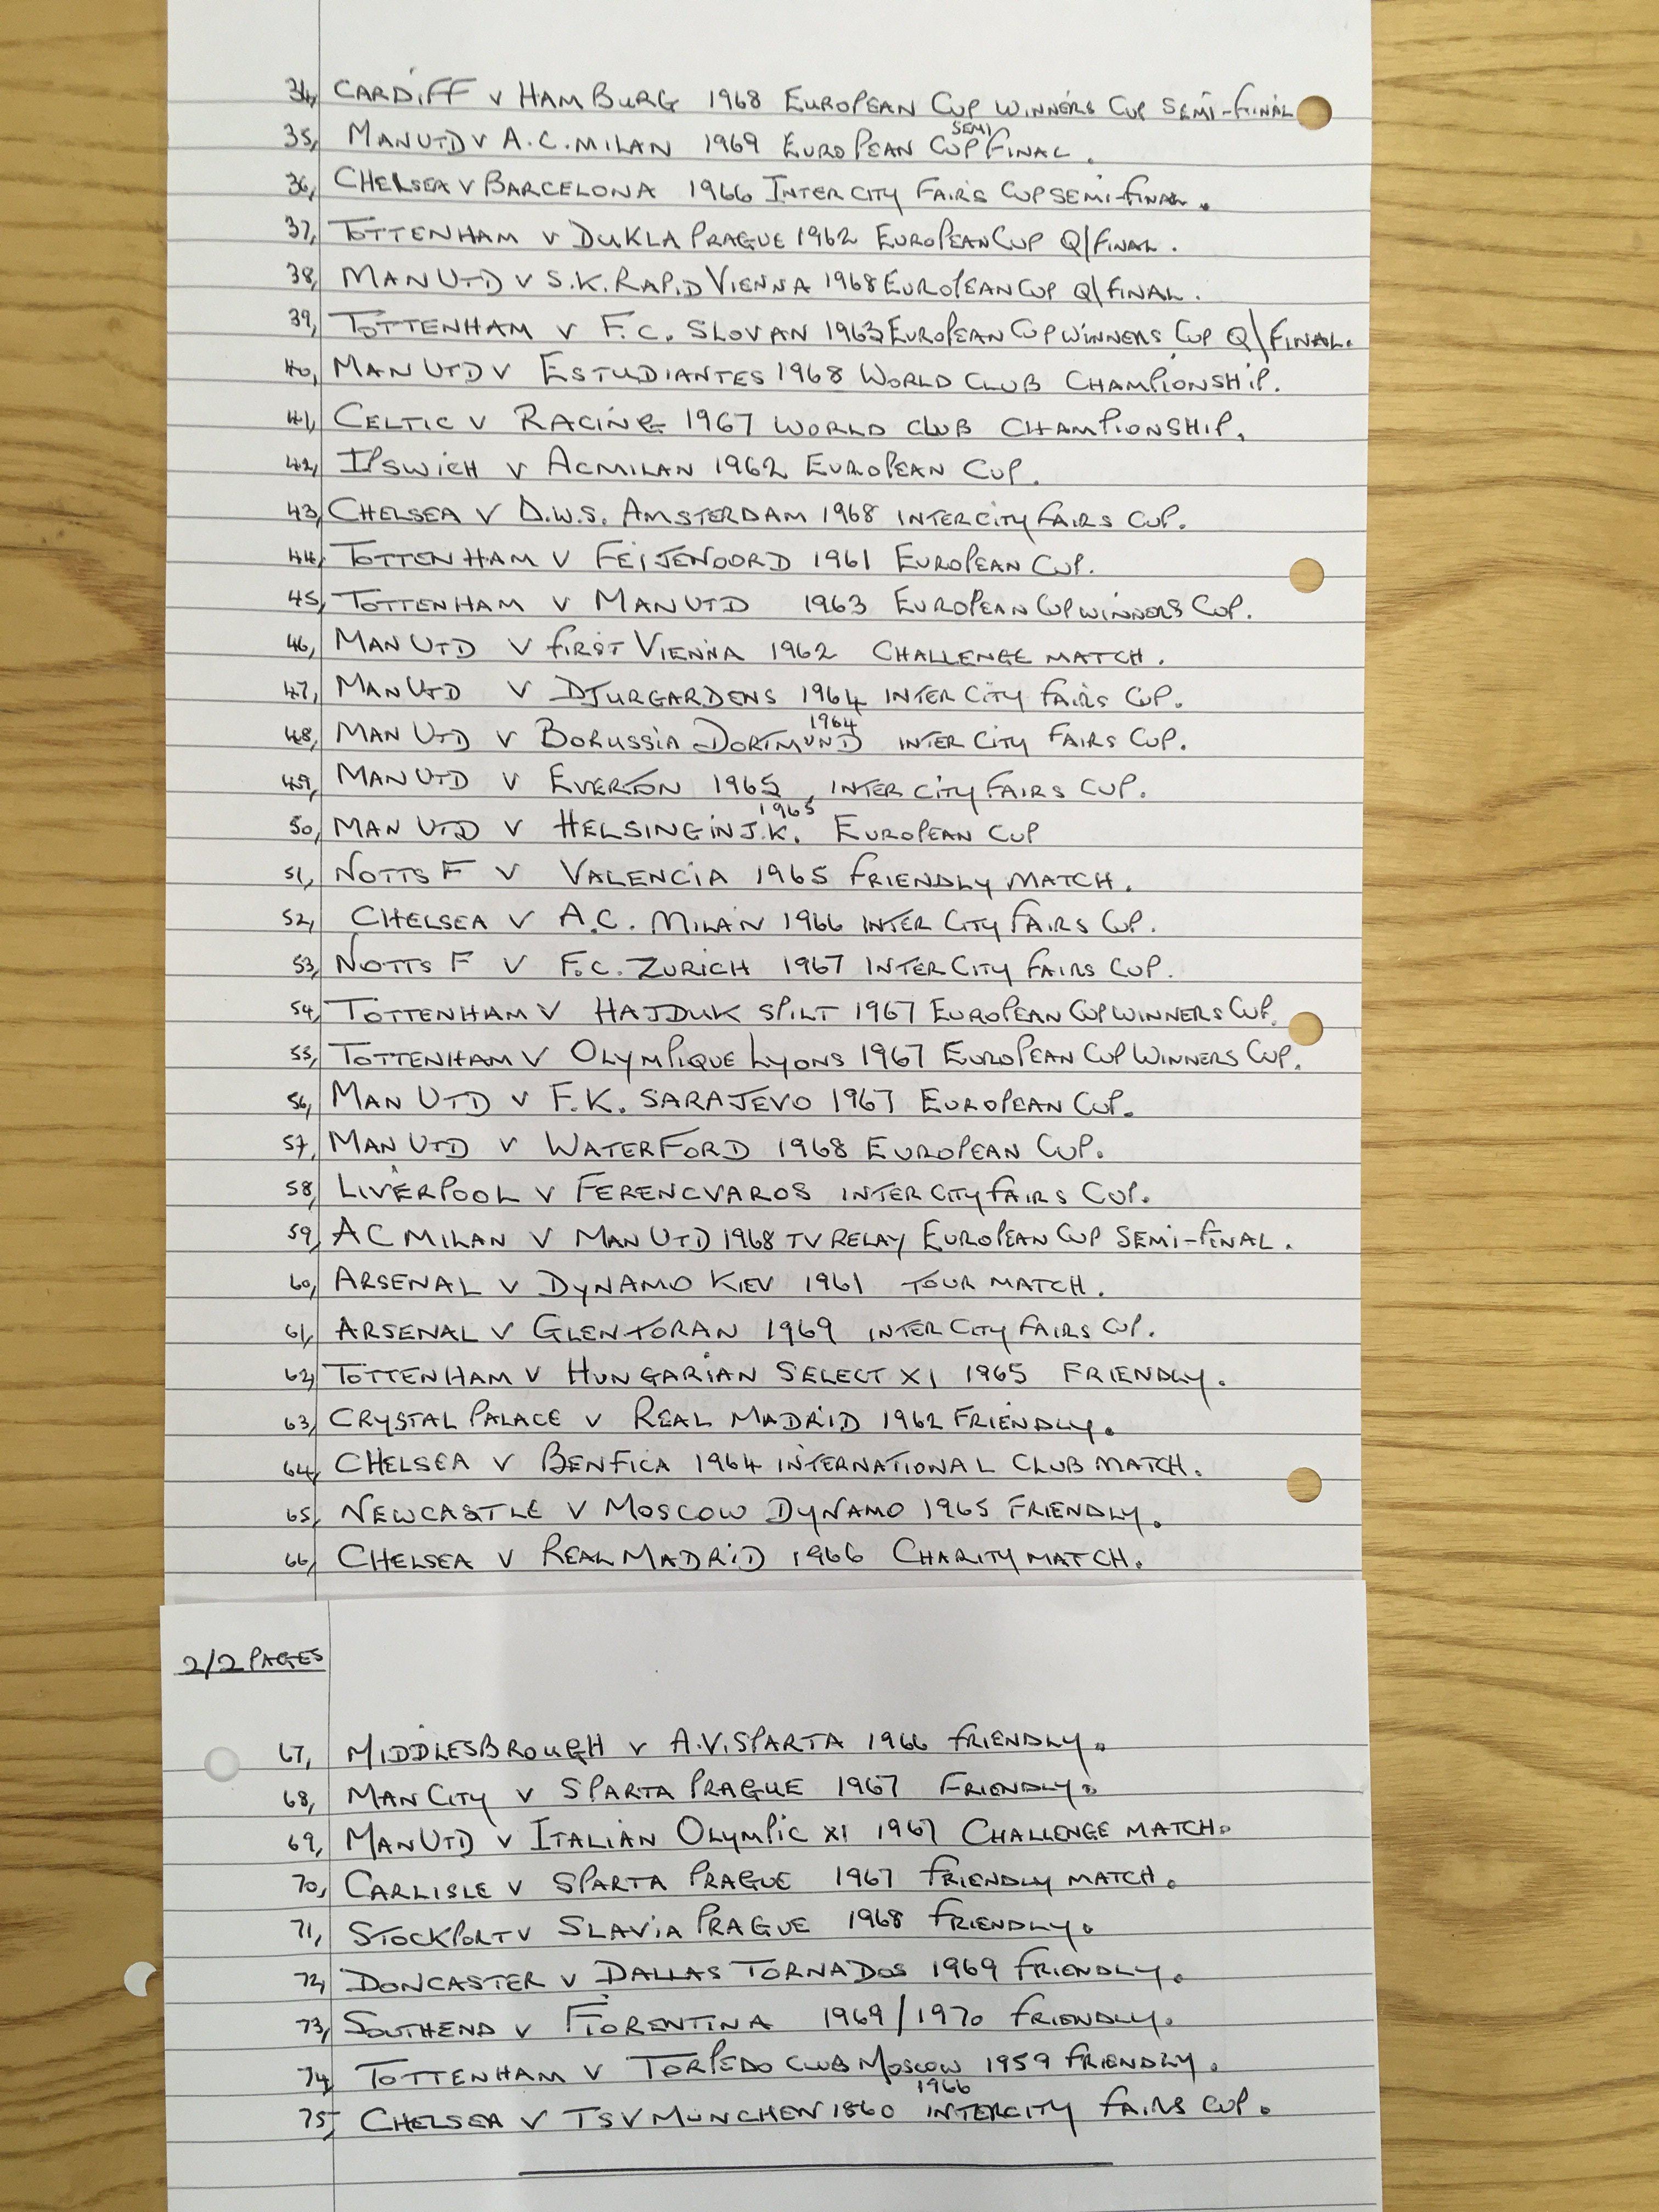 34, CARDIFF V HAMBURG 1968 EUROPEAN CUP WINNERS CUP SEMI-FINAL
35, MAN UTD V A.C. MILAN 1969 EUROPEAN CUP SEMI FINAL.
36, CHELSEA V BARCELONA 1966 INTER CITY FAIRS CUP SEMI-FINAL.
37, TOTTENHAM V DUKLA PRAGUE 1962 EUROPEAN CUP Q/FINAL.
38, MAN UTD V S.K. RAPID VIENNA 1968 EUROPEAN CUP Q\FINAL.
39, TOTTENHAM V F.C. SLOVAN 1963 EUROPEAN CUP WINNERS CUP Q\FINAL.
40, MAN UTD V ESTUDIANTES 1968 WORLD CLUB CHAMPIONSHIP.
41, CELTIC V RACING 1967 WORLD CLUB CHAMPIONSHIP.
42, IPSWICH V AC MILAN 1962 EUROPEAN CUP.
43, CHELSEA V D.W.S. AMSTERDAM 1968 INTER CITY FAIRS CUP.
44, TOTTENHAM V FEIJENOORD 1961 EUROPEAN CUP.
45, TOTTENHAM V MAN UTD 1963 EUROPEAN CUP WINNERS CUP.
46, MAN UTD V FIRST VIENNA 1962 CHALLENGE MATCH.
47, MAN UTD V DJURGARDENS 1964 INTER CITY FAIRS CUP.
48, MAN UTD V BORUSSIA DORTMUND 1964 INTER CITY FAIRS CUP.
49, MAN UTD V EVERTON 1965, INTER CITY FAIRS CUP.
50, MAN UTD V HELSINGIN J.K. 1965 EUROPEAN CUP
51, NOTTS F V VALENCIA 1965 FRIENDLY MATCH.
52, CHELSEA V A.C. MILAN 1966 INTER CITY FAIRS CUP.
53, NOTTS F V F.C. ZURICH 1967 INTER CITY FAIRS CUP.
54, TOTTENHAM V HAJDUK SPILT 1967 EUROPEAN CUP WINNERS CUP.
55, TOTTENHAM V OLYMPIQUE LYONS 1967 EUROPEAN CUP WINNERS CUP.
56, MAN UTD V F.K. SARAJEVO 1967 EUROPEAN CUP.
57, MAN UTD V WATERFORD 1968 EUROPEAN CUP.
58, LIVERPOOL V FERENCVAROS INTER CITY FAIRS CUP.
59, AC MILAN V MAN UTD 1968 TV RELAY EUROPEAN CUP SEMI-FINAL.
60, ARSENAL V DYNAMO KIEV 1961 TOUR MATCH.
61, ARSENAL V GLENTORAN 1969 INTER CITY FAIRS CUP.
62, TOTTENHAM V HUNGARIAN SELECT XI 1965 FRIENDLY.
63, CRYSTAL PALACE V REAL MADRID 1962 FRIENDLY.
64, CHELSEA V BENFICA 1964 INTERNATIONAL CLUB MATCH.
65, NEWCASTLE V MOSCOW DYNAMO 1965 FRIENDLY.
66, CHELSEA V REAL MADRID 1966 CHARITY MATCH.
2/2 PAGES
67, MIDDLESBROUGH V A.V. SPARTA 1966 FRIENDLY.
68, MAN CITY V SPARTA PRAGUE 1967 FRIENDLY.
69, MAN UTD V ITALIAN OLYMPIC XI 1967 CHALLENGE MATCH.
70, CARLISLE V SPARTA PRAGUE 1967 FRIENDLY MATCH.
71, STOCKPORT V SLAVIA PRAGUE 1968 FRIENDLY.
72, DONCASTER V DALLAS TORNADOS 1969 FRIENDLY.
73, SOUTHEND V FIORENTINA 1969/1970 FRIENDLY.
74, TOTTENHAM V TORPEDO CLUB MOSCOW 1959 FRIENDLY.
75, CHELSEA V TSV MUNCHEN 1860 1966 INTERCITY FAIRS CUP.